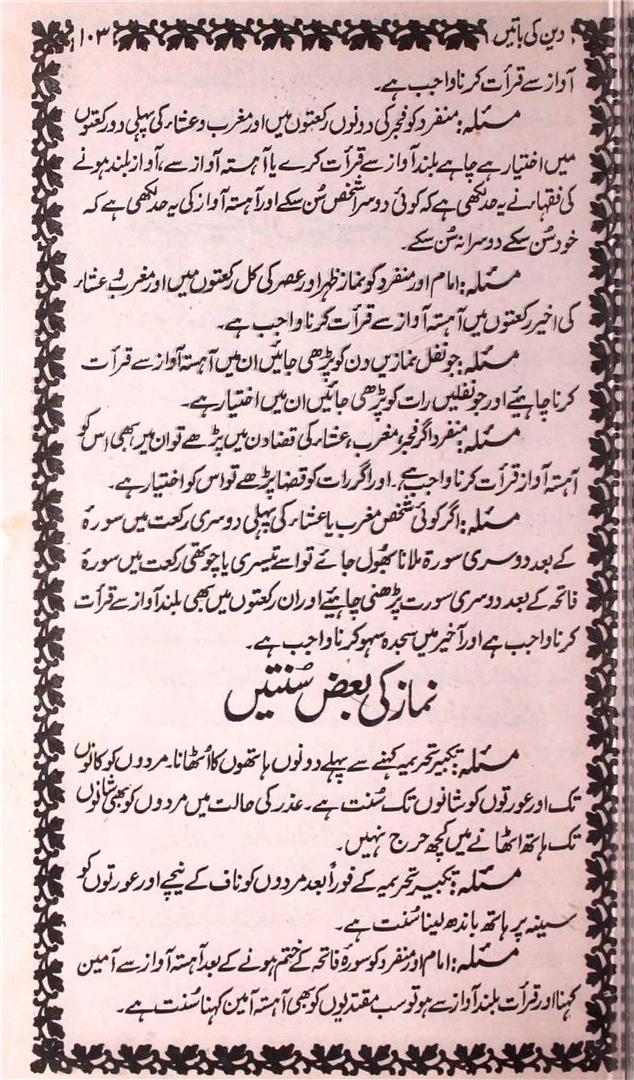 دین کی باتیں ۱۰۳
آواز سے قرأت کرنا واجب ہے۔
مسئلہ: منفرد کو فجر کی دونوں رکعتوں میں اور مغرب و عشاء کی پہلی دو رکعتوں
میں اختیار ہے چاہے بلند آواز سے قرأت کرے یا آہستہ آواز سے، آواز بلند ہونے
کی فقہاء نے یہ حد لکھی ہے کہ کوئی دوسرا شخص سُن سکے اور آہستہ آواز کی یہ حد لکھی ہے کہ
خود سُن سکے دوسرا نہ سُن سکے۔
مسئلہ: امام اور منفرد کو نماز ظہر اور عصر کی کل رکعتوں میں اور مغرب و عشاء
کی اخیر رکعتوں میں آہستہ آواز سے قرأت کرنا واجب ہے۔
مسئلہ: جو نفل نمازیں دن کو پڑھی جائیں ان میں آہستہ آواز سے قرأت
کرنا چاہئے اور جو نفلیں رات کو پڑھی جائیں ان میں اختیار ہے۔
مسئلہ: منفرد اگر فجر، مغرب، عشاء کی قضا دن میں پڑھے تو ان میں بھی اس کو
آہستہ آواز قرأت کرنا واجب ہے۔ اور اگر رات کو قضا پڑھے تو اس کو اختیار ہے۔
مسئلہ: اگر کوئی شخص مغرب یا عشاء کی پہلی دوسری رکعت میں سورہ
کے بعد دوسری سورۃ ملانا بھول جائے تو اسے تیسری یا چوتھی رکعت میں سورۂ
فاتحہ کے بعد دوسری سورت پڑھنی چاہیئے اور ان رکعتوں میں بھی بلند آواز سے قرأت
کرنا واجب ہے اور آخیر میں سجدہ سہو کرنا واجب ہے۔
نماز کی بعض سُنتیں
مسئلہ: تکبیر تحریمہ کہنے سے پہلے دونوں ہاتھوں کا اُٹھانا۔ مردوں کو کانوں
تک اور عورتوں کو شانوں تک سُنت ہے۔ عذر کی حالت میں مردوں کو بھی شانوں
تک ہاتھ اٹھانے میں کچھ حرج نہیں۔
مسئلہ: تکبیر تحریمہ کے فوراً بعد مردوں کو ناف کے نیچے اور عورتوں کو
سینہ پر ہاتھ باندھ لینا سُنت ہے۔
مسئلہ: امام اور منفرد کو سورۂ فاتحہ کے ختم ہونے کے بعد آہستہ آواز سے آمین
کہنا اور قرأت بلند آواز سے ہو تو سب مقتدیوں کو بھی آہستہ آمین کہنا سُنت ہے۔